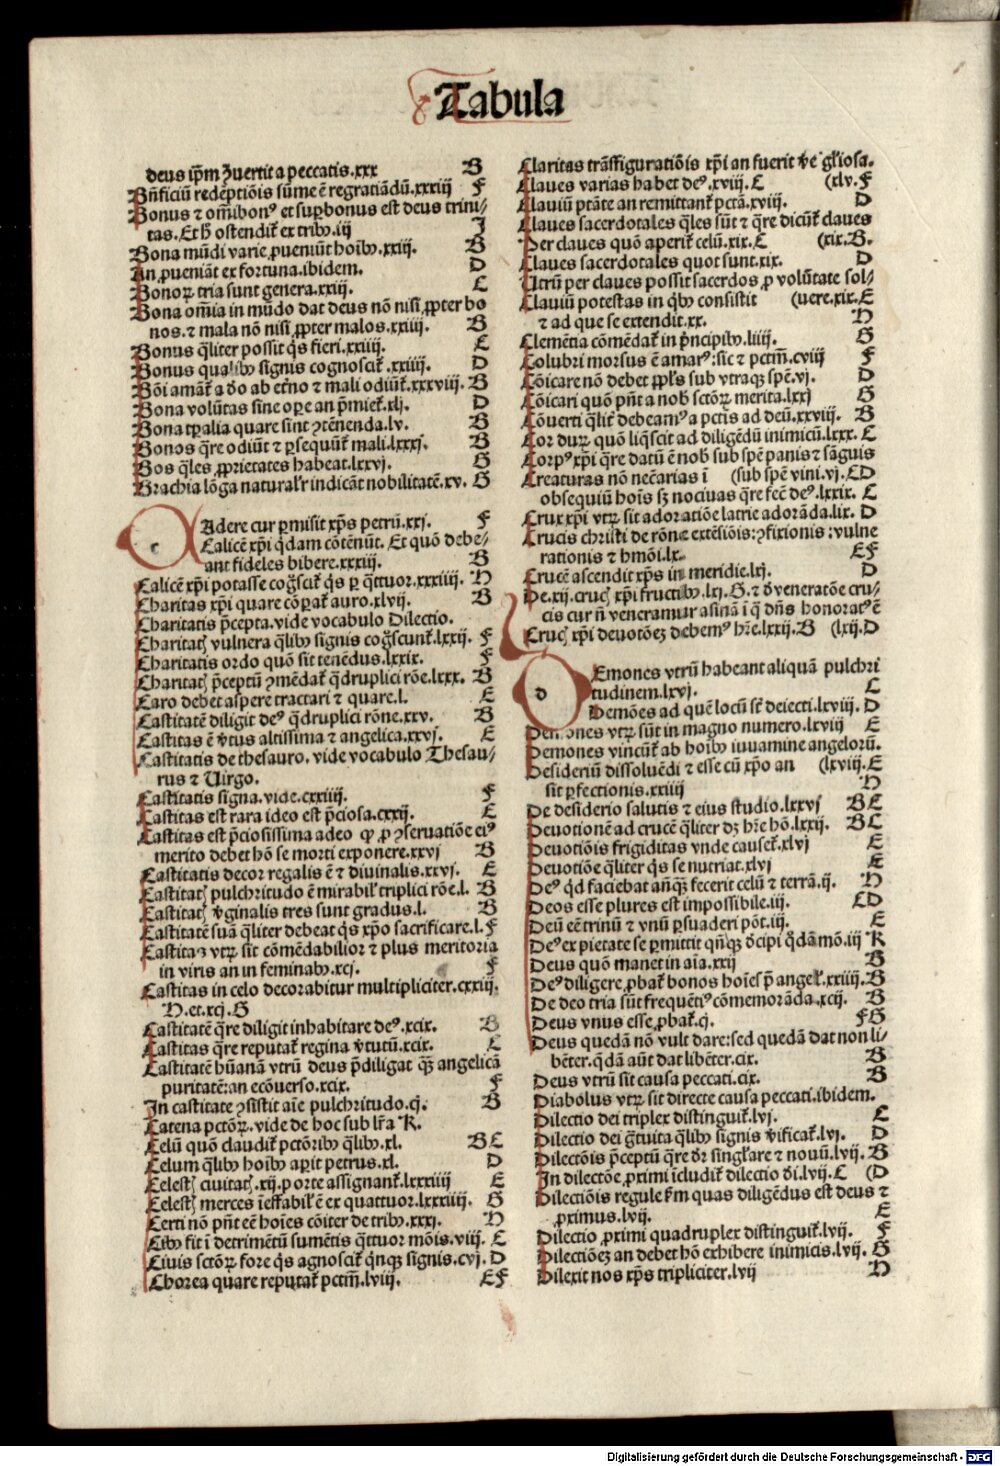 Tabula
deus ip̄m ꝯuertit a peccatis.xxx B
Bn̄ficiū redēptiōis sūme ē regratiādū.xxxiij F
Bonus ⁊ om̄ibonꝰ et suꝑbonus est deus trini-
tas. Et hͦ ostendit̄ ex tribꝰ.iij J
Bona mūdi varie ꝓueniūt hoībꝰ.xxiij. B
An ꝓueniāt ex fortuna.ibidem. D
Bonoꝝ tria sunt genera.xxiij. C
Bona om̄ia in mūdo dat deus nō nisi ꝓpter bo
nos.⁊ mala nō nisi ꝓpter malos.xxiij. B
Bonus q̄liter possit q̄s fieri.xxiiij. C
Bonus qualibꝰ signis cognoscit̄.xxiiij. D
Bōi amāt̄ a deo ab et̄no ⁊ mali odiūt̄.xxxviij. B
Bona volūtas sine oꝑe an p̄miet̄.xlj. D
Bona tp̄alia quare sint ꝯtēnenda.lv. B
Bonos q̄re odiūt ⁊ ꝑsequūt̄ mali.lxxxj. B
Bos q̄les ꝓprietates habeat.lxxvj. G
Brachia lōga naturalr̄ indicāt nobilitatē.xv. G
c Adere cur ꝑmisit xp̄s petrū.xxj. F
Calicē xp̄i q̄dam cōtēnūt. Et quō debe-
ant fideles bibere.xxxiij. B
Calicē xp̄i potasse cog̃scit̄ q̄s ꝑ q̄ttuor.xxxiiij. H
Charitas xp̄i quare cōꝑat̄ auro.xlvij. B
Charitatis p̄cepta.vide vocabulo Dilectio.
Charitatꝭ vulnera q̄libꝰ signis cog̃scunt̄.lxxij. F
Charitatis ordo quō sit tenēdus.lxxix. F
Charitatꝭ p̄ceptū ꝯmēdat̄ q̄druplici rōe.lxxx. B
Caro debet aspere tractari ⁊ quare.l. E
Castitatē diligit deꝰ q̄druplici rōne.xxv. B
Castitas ē v̄tus altissima ⁊ angelica.xxvj. E
Castitatis de thesauro. vide vocabulo Thesau-
rus ⁊ Uirgo.
Castitatis signa.vide.cxxiiij. F
Castitas est rara ideo est p̄ciosa.cxxij. E
Castitas est p̄ciosissima adeo ꝙ ꝓ ꝯseruatiōe eiꝰ
merito debet hō se morti exponere.xxvj B
Castitatis decor regalis ē ⁊ diuinalis.xxvj. E
Castitatꝭ pulchritudo ē mirabil' triplici rōe.l. B
Castitatꝭ v̄ginalis tres sunt gradus.l. B
Castitatē suā q̄liter debeat q̄s xp̄o sacrificare.l. F
Castitas vtꝝ sit cōmēdabilior ⁊ plus meritoria
in viris an in feminabꝰ.xcj. F
Castitas in celo decorabitur multipliciter.cxxiij.
H.et.xcj.G
Castitatē q̄re diligit inhabitare deꝰ.xcix. B
Castitas q̄re reputat̄ regina v̄tutū.xcix. C
Castitatē hūanā vtrū deus p̄diligat qꝫ̄ angelicā
puritatē:an ecōuerso.xcix. F
In castitate ꝯsistit aīe pulchritudo.cj. B
Catena pctōꝝ.vide de hoc sub lr̄a K.
Celū quō claudit̄ pctōribꝰ q̄libꝰ.xl. BC
Celum q̄libꝰ hoībꝰ aꝑit petrus.xl. D
Celestꝭ ciuitatꝭ.xij.porte assignant̄.lxxxiiij E
Celestꝭ merces īeffabil' ē ex quattuor.lxxxiiij. G
Certi nō pn̄t eē hoīes cōiter de tribꝰ.xxxj. H
Cibꝰ fit ī detrimētū sumētis q̄ttuor mōis.viij. C
Ciuis sctōꝝ fore q̄s agnoscit̄ q̄nqꝫ signis.cvj. D
Chorea quare reputat̄ pctm̄.lviij. EF
Claritas trāffiguratiōis xp̄i an fuerit v̄e gl'iosa.
Claues varias habet deꝰ.xviij.C (xlv.F
Clauiū ptāte an remittant̄ pctā.xviij. D
Claues sacerdotales q̄les sūt ⁊ q̄re dicūt̄ claues
Per claues quō aperit̄ celū.xix.C (xix.B.
Claues sacerdotales quot sunt.xix. D
Utrū per claues possit sacerdos ꝓ volūtate sol-
Clauiū potestas in q̄bꝰ consistit (uere.xix.E
⁊ ad que se extendit.xx. H
Clemētia cōmēdat̄ in p̄ncipibꝰ.liiij. G
Colubri morsus ē amarꝰ:sic ⁊ pctm̄.cviij F
Cōicare nō debet ppl's sub vtraqꝫ spē.vj. D
Cōicari quō pn̄t a nob̄ sctōꝝ merita.lxxj G
Cōuerti q̄lit̄ debeamꝰ a pctīs ad deū.xxviij. B
Cor durū quō liq̄scit ad diligēdū inimicū.lxxx. C
Corpꝰ xp̄i q̄re datū ē nob̄ sub spē panis ⁊ sāguis
Creaturas nō nec̄arias ī (sub spē vini.vj.CD
obsequiū hoīs sꝫ nociuas q̄re fec̄ deꝰ.lxxix. C
Crux xp̄i vtꝝ sit adoratiōe latrie adorāda.lix. D
Crucis christi de rōne extēsiōis:ꝯfixionis:vulne
rationis ⁊ hmōi.lx. EF
Crucē ascendit xp̄s in meridie.lxj. D
De.xij.crucꝭ xp̄i fructibꝰ.lxj.G.⁊ d̄ veneratōe cru-
cis cur n̄ veneramur asinā ī q̄ dn̄s honoratꝰ ē
Crucꝭ xp̄i deuotōeꝫ debemꝰ hr̄e.lxxij.B (lxij.D
d Emones vtrū habeant aliquā pulchri
tudinem.lxvj. C
Demōes ad quē locū sūt deiecti.lxviij. D
Demones vtꝝ sūt in magno numero.lxviij E
Demones vincūt̄ ab hoībꝰ iuuamine angelorū.
Desideriū dissoluēdi ⁊ esse cū xp̄o an (lxviij.E
sit ꝑfectionis.xxiiij H
De desiderio salutis ⁊ eius studio.lxxvj BC
Deuotionē ad crucē q̄liter dꝫ hr̄e hō.lxxij. BC
Deuotiōis frigiditas vnde causet̄.xlvj E
Deuotiōe q̄liter q̄s se nutriat.xlvj E
Deꝰ qd̄ faciebat añqꝫ̄ fecerit celū ⁊ terrā.ij. H
Deos esse plures est impossibile.iij. CD
Deū eē trinū ⁊ vnū ꝑsuaderi pōt.iij. E
Deꝰ ex pietate se ꝑmittit qn̄qꝫ d̄cipi q̄dā mō.iij K
Deus quō manet in aīa.xxij B
Deꝰ diligere ꝓbat̄ bonos hoīes p̄ angel'.xxiiij. B
De deo tria sūt frequētiꝰ cōmemorāda.xcij. B
Deus vnus esse ꝓbat̄.cj. FG
Deus quedā nō vult dare:sed quedā dat non li-
bēter.q̄dā aūt dat libēter.cix. B
Deus vtrū sit causa peccati.cix. B
Diabolus vtꝝ sit directe causa peccati.ibidem.
Dilectio dei triplex distinguit̄.lvj. C
Dilectio dei g̃tuita q̄libꝰ signis v̄ificat̄.lvj. D
Dilectōis p̄ceptū q̄re dr̄ singl'are ⁊ nouū.lvij. B
In dilectōe ꝓximi īcludit̄ dilectio dei.lvij.C (D
Dilectiōis regule ẜm quas diligēdus est deus ⁊
ꝓximus.lvij. E
Dilectio ꝓximi quadruplex distinguit̄.lvij. F
Dilectiōeꝫ an debet hō exhibere inimicis.lvij. G
Dilexit nos xp̄s tripliciter.lvij H
Digitalisierung gefördert durch die Deutsche Forschungsgemeinschaft - DFG